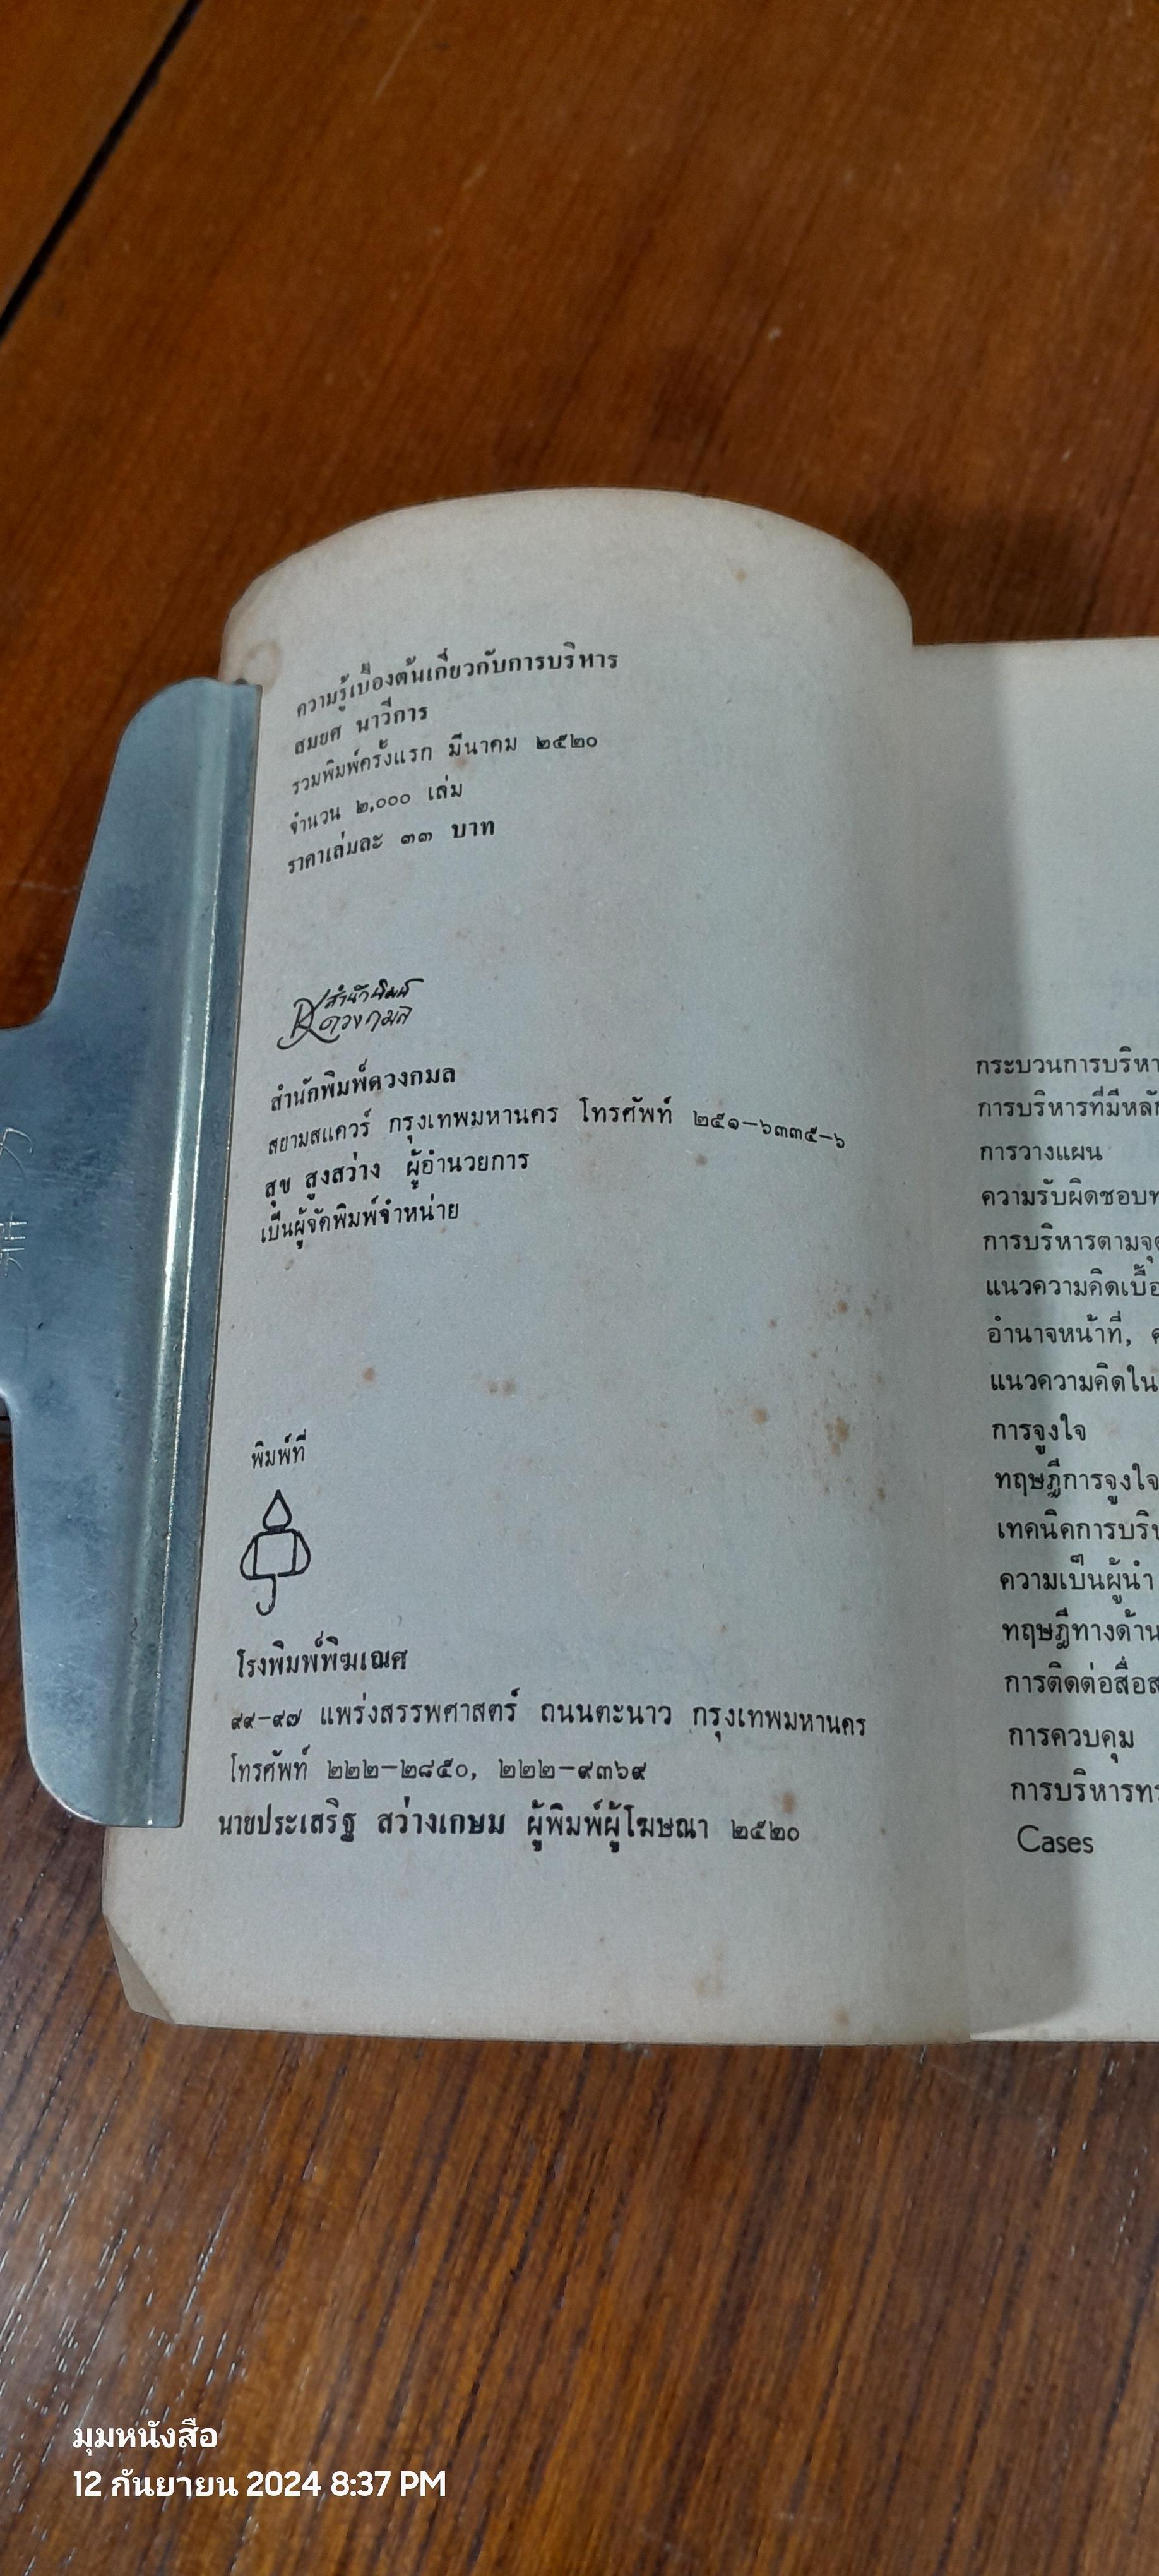 ความรู้เบื้องต้นเกี่ยวกับการบริหาร
สมยศ นาวีการ
รวมพิมพ์ครั้งแรก มีนาคม ๒๕๒๐
จำนวน ๒,๐๐๐ เล่ม
ราคาเล่มละ ๓๓ บาท
สำนักพิมพ์
ดวงกมล
สำนักพิมพ์ดวงกมล
สยามสแควร์ กรุงเทพมหานคร โทรศัพท์ ๒๕๑-๖๓๓๕-๖
สุข สูงสว่าง ผู้อำนวยการ
เป็นผู้จัดพิมพ์จำหน่าย
พิมพ์ที่
โรงพิมพ์พิฆเณศ
๙๙-๙๗ แพร่งสรรพศาสตร์ ถนนตะนาว กรุงเทพมหานคร
โทรศัพท์ ๒๒๒-๒๘๕๐, ๒๒๒-๙๓๖๙
นายประเสริฐ สว่างเกษม ผู้พิมพ์ผู้โฆษณา ๒๕๒๐
กระบวนการบริหา
การบริหารที่มีหลั
การวางแผน
ความรับผิดชอบท
การบริหารตามจุด
แนวความคิดเบื้อ
อำนาจหน้าที่,
แนวความคิดใน
การจูงใจ
ทฤษฎีการจูงใจ
เทคนิคการบริ
ความเป็นผู้นำ
ทฤษฎีทางด้าน
การติดต่อสื่อส
การควบคุม
การบริหารท
Cases
มุมหนังสือ
12 กันยายน 2024 8:37 PM